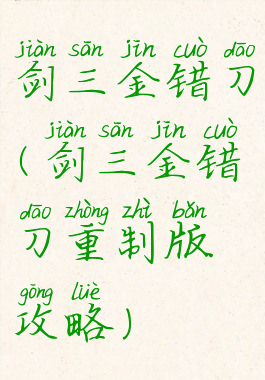 jiàn sān jīn cuò dāo
剑三金错刀
jiàn sān jīn cuò
(剑三金错
dāo zhòng zhì bǎn
刀重制版
gōng lüè
攻略)